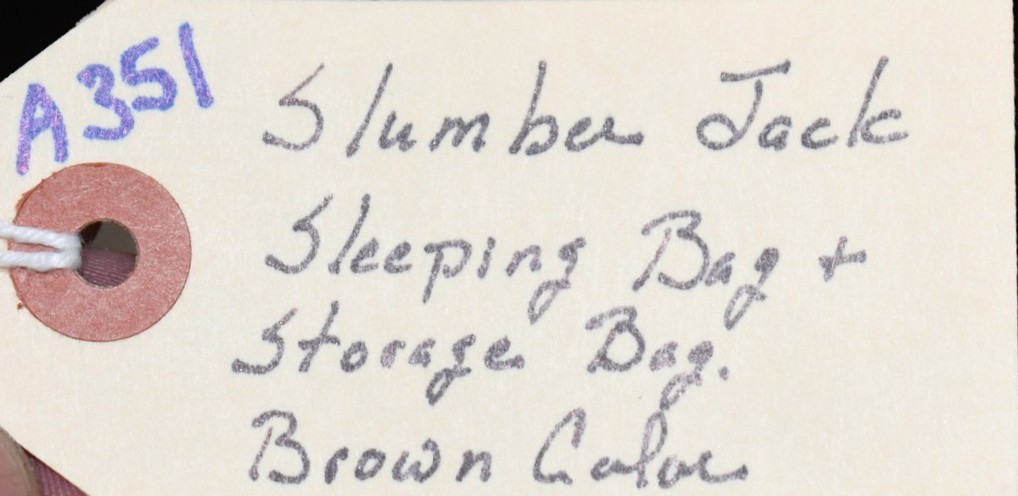 A351
Slumber Jack
Sleeping Bag +
Storage Bag.
Brown Color